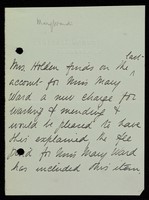 Maryland
last
Mrs. Holden finds on the ^
account for Miss Mary
Ward a new charge for
washing & mending &
would be pleased to have
this explained. The fee
paid for Miss Mary Ward
has included this item